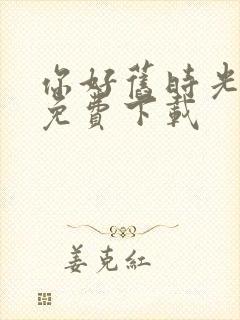 你好舊時光
免費下載
姜克紅